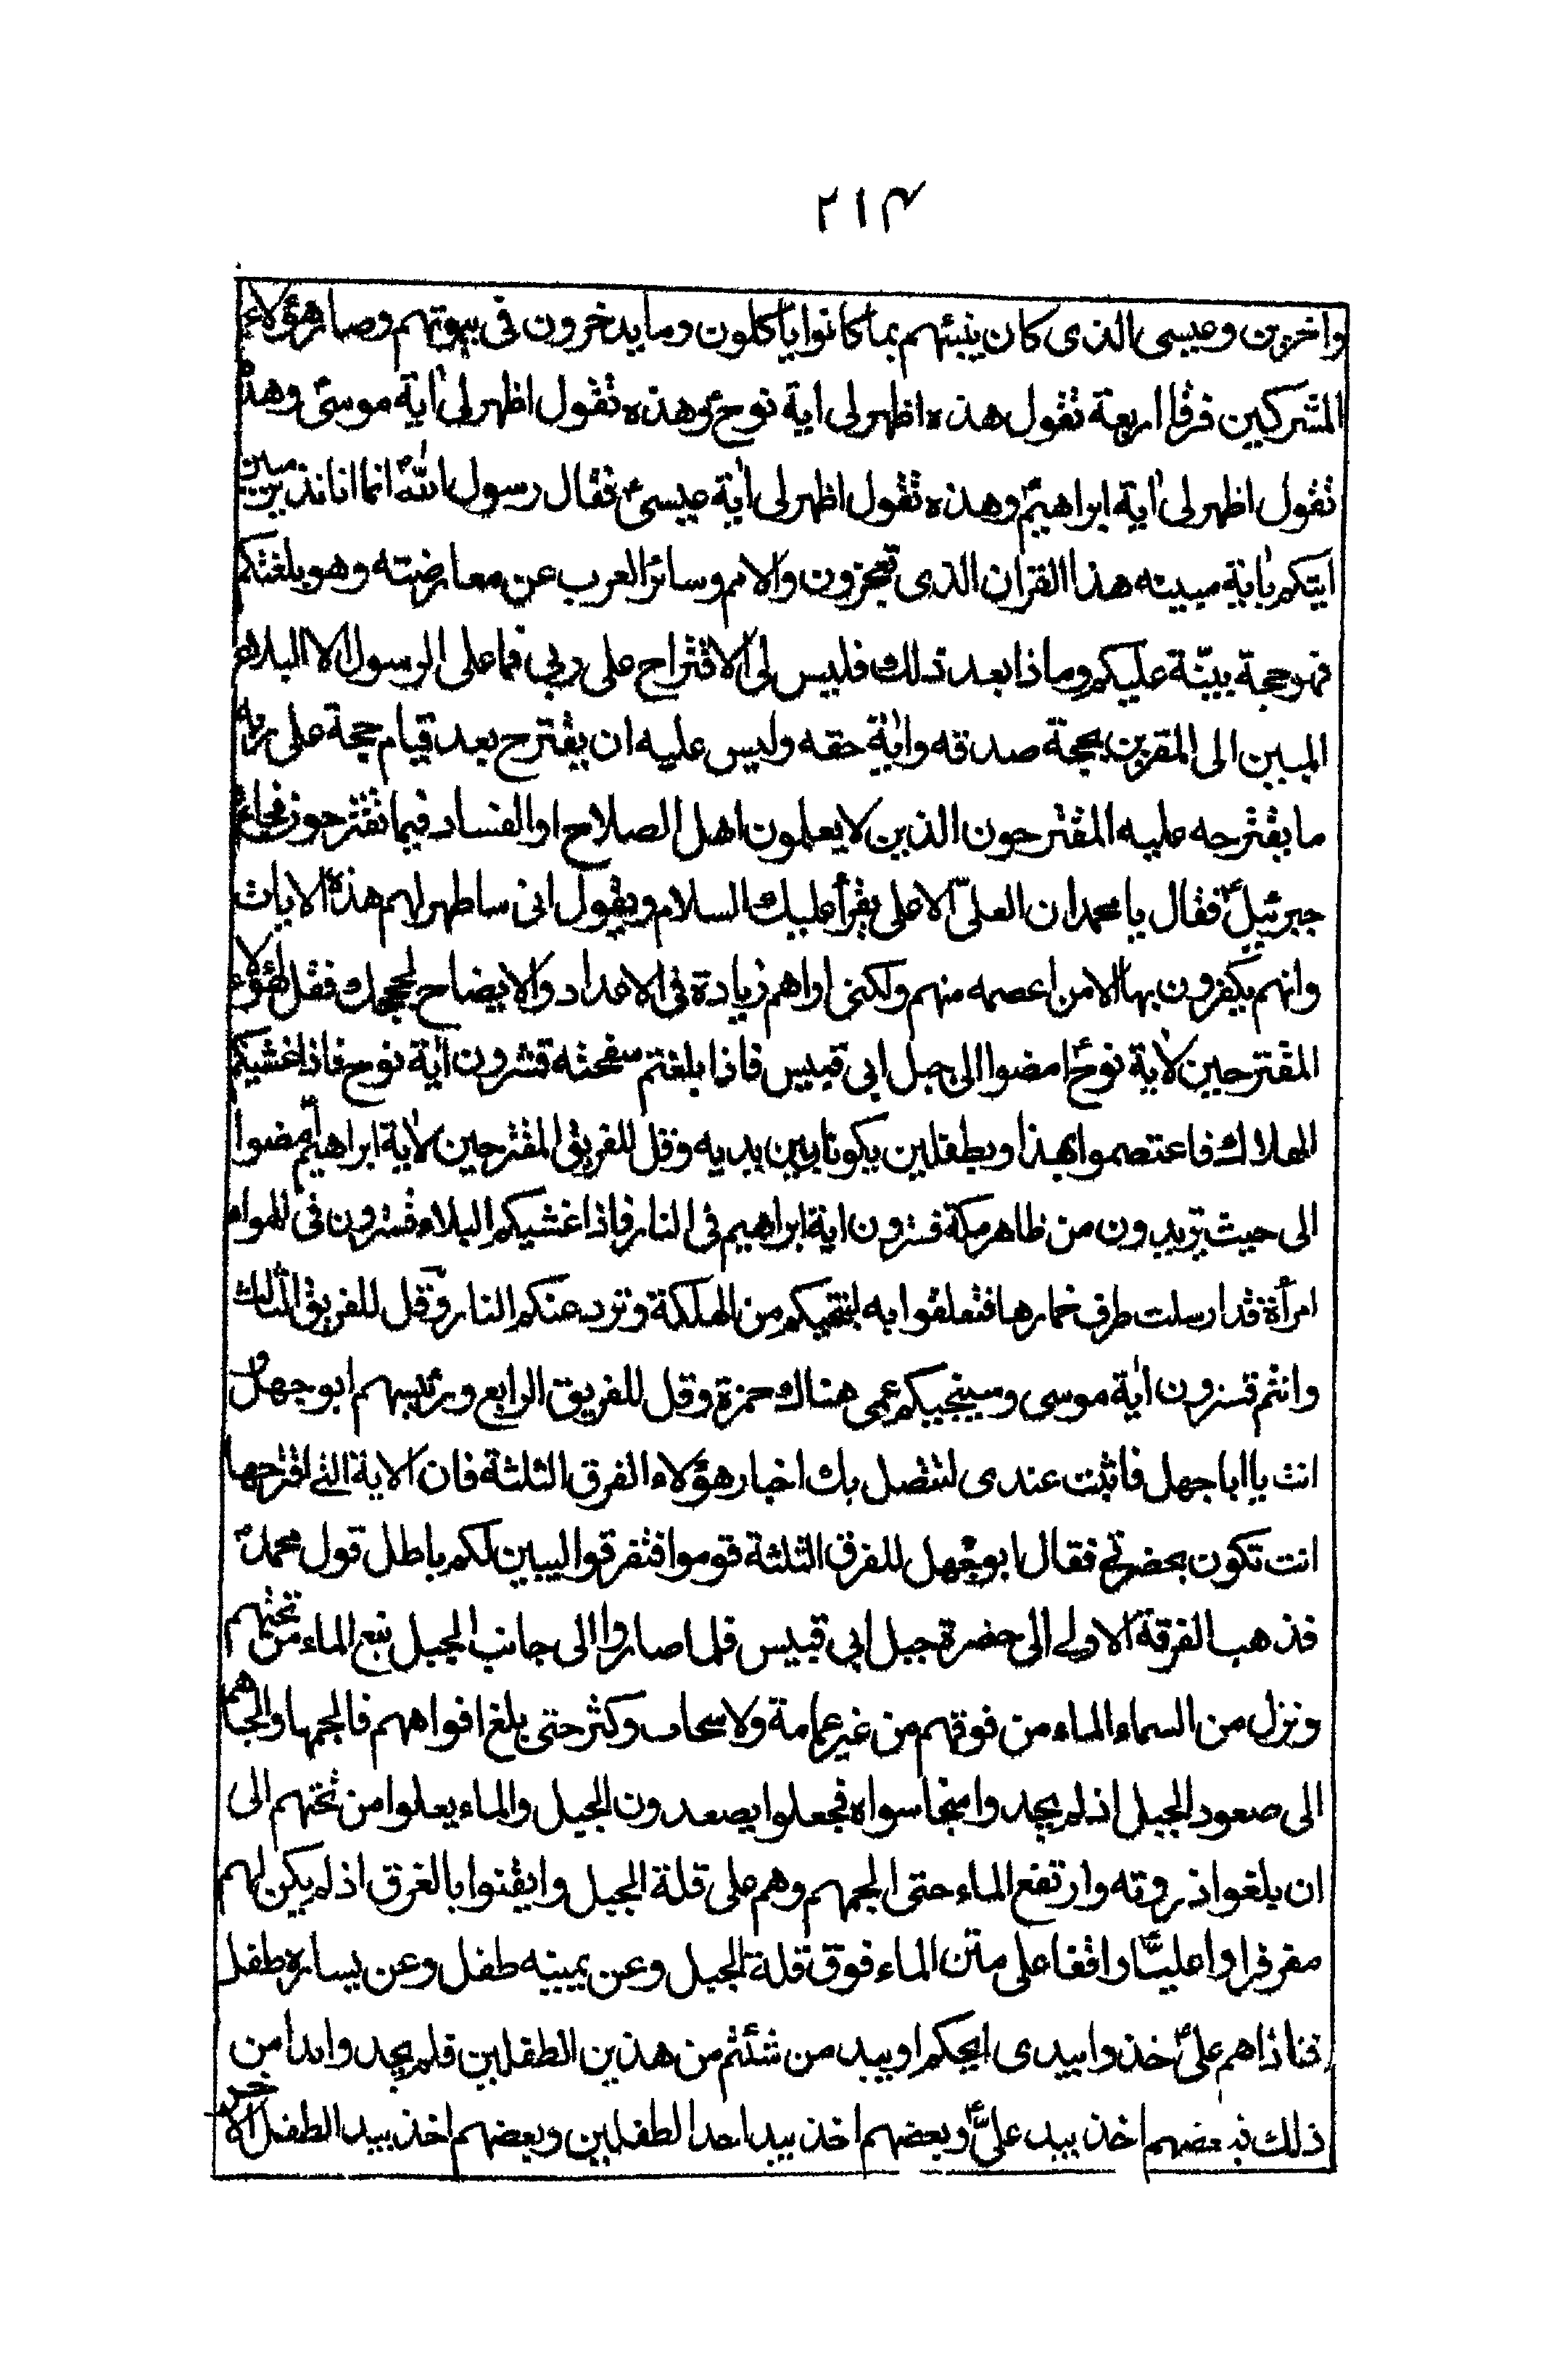 ٢١٤
واخرين وعيسى الذى كان ينبئهم بما كانوا يأكلون وما يدخرون فى بيوتهم وصار هؤلاء
المشركين فرقا اربعة تقول هذه اظهر لى اية نوح ع وهذه تقول اظهر لى اٰية موسى ع وهذه
تقول اظهر لى اٰية ابراهيم ع وهذه تقول اظهر لى اٰية عيسى ع فقال رسول الله ص انما انا نذير مبين
اتيتكم باٰية مبينه هذا القران الذى تعجزون والامم وسائر العرب عن معارضته وهو بلغتكم
فهو حجة بيّنة عليكم وما ذا بعد ذلك فليس لى الاقتراح على ربى فما على الرسول الا البلاغ
المبين الى المقرين بحجة صدقه واٰية حقه وليس عليه ان يقترح بعد قيام حجة على ربه
ما يقترحه عليه المقترحون الذين لا يعلمون اهل الصلاح او الفساد فيما تقترحون فجاء
جبرئيل ع فقال يا محمد ان العلىّ الاعلى يقرأ عليك السلام ويقول انى ساظهر لهم هذه الايات
وانهم يكفرون بها الا من اعصمه منهم ولكنى اراهم زيادة فى الاعذار والايضاح لحججك فقل لهؤلاء
المقترحين لاٰية نوح ع امضوا الى جبل ابى قبيس فاذا بلغتم سفحه فسترون اٰية نوح فاذا غشيكم
الهلاك فاعتصموا بهذا وبطفلين يكونان بين يديه وقل للفريق المقترحين لاٰية ابراهيم ع امضوا
الى حيث تريدون من ظاهر مكة فسترون اية ابراهيم فى النار فاذا غشيكم البلاء فسترون فى الهواء
امرأة قد ارسلت طرف خمارها فتعلقوا به لتنجيكم من الهلكة وترد عنكم النار وقل للفريق الثالث
وانتم فسترون اٰية موسى وسينجيكم عمى هناك حمزة وقل للفريق الرابع ورئيسهم ابو جهل و
انت يا ابا جهل فاثبت عندى لتتصل بك اخبار هؤلاء الفرق الثلثة فان الاية التى اقترحتها
انت تكون بحضرتى فقال ابو جهل للفرق الثلثة قوموا فتفرقوا ليبين لكم باطل قول محمد ص
فذهب الفرقة الاولى الى حضرة جبل ابى قبيس فلما صاروا الى جانب الجبل نبع الماء من تحتهم
ونزل من السماء الماء من فوقهم من غير غمامة ولا سحاب وكثر حتى بلغ افواههم فالجمها والجاهم
الى صعود الجبل اذ لم يجدوا منجا سواه فجعلوا يصعدون الجبل والماء يعلوا من تحتهم الى
ان بلغوا ذروته وارتفع الماء حتى الجمهم وهم على قلة الجبل وايقنوا بالغرق اذ لم يكن لهم
مفر فراوا عليّا ع واقفا على متن الماء فوق قلة الجبل وعن يمينه طفل وعن يساره طفل
فناداهم على ع خذوا بيدى انجيكم او بيد من شئتم من هذين الطفلين فلم يجدوا بدا من
ذلك فبعضهم اخذ بيد علىّ ع وبعضهم اخذ بيد احد الطفلين وبعضهم اخذ بيد الطفل الاخر